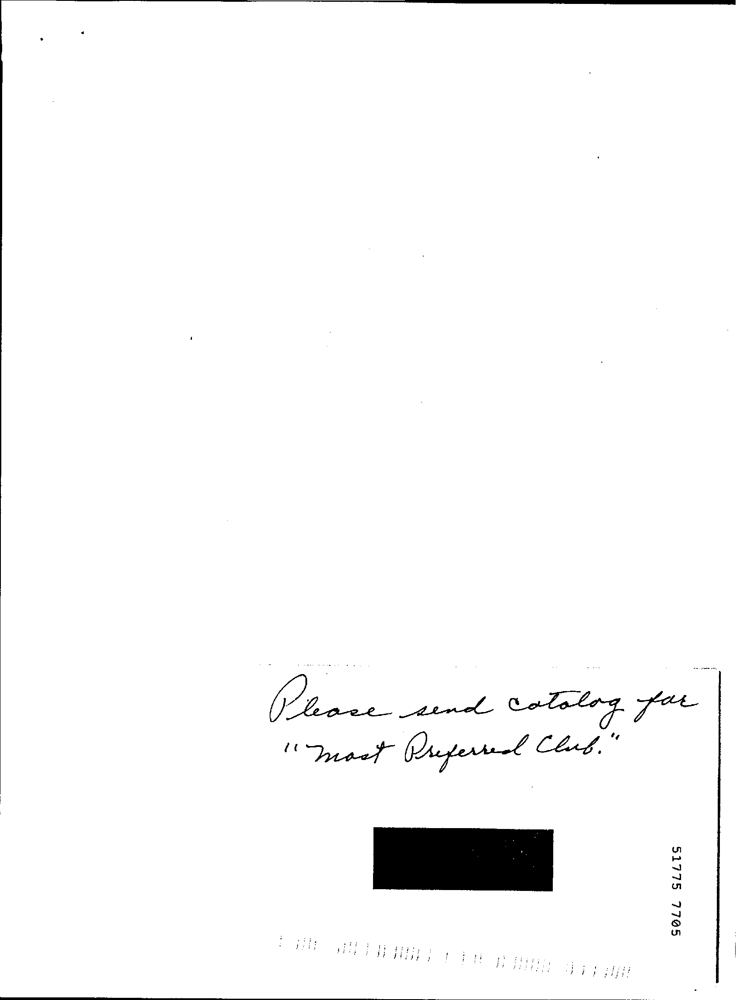 Please send catalog for
"Most Preferred Club."
51775 7705